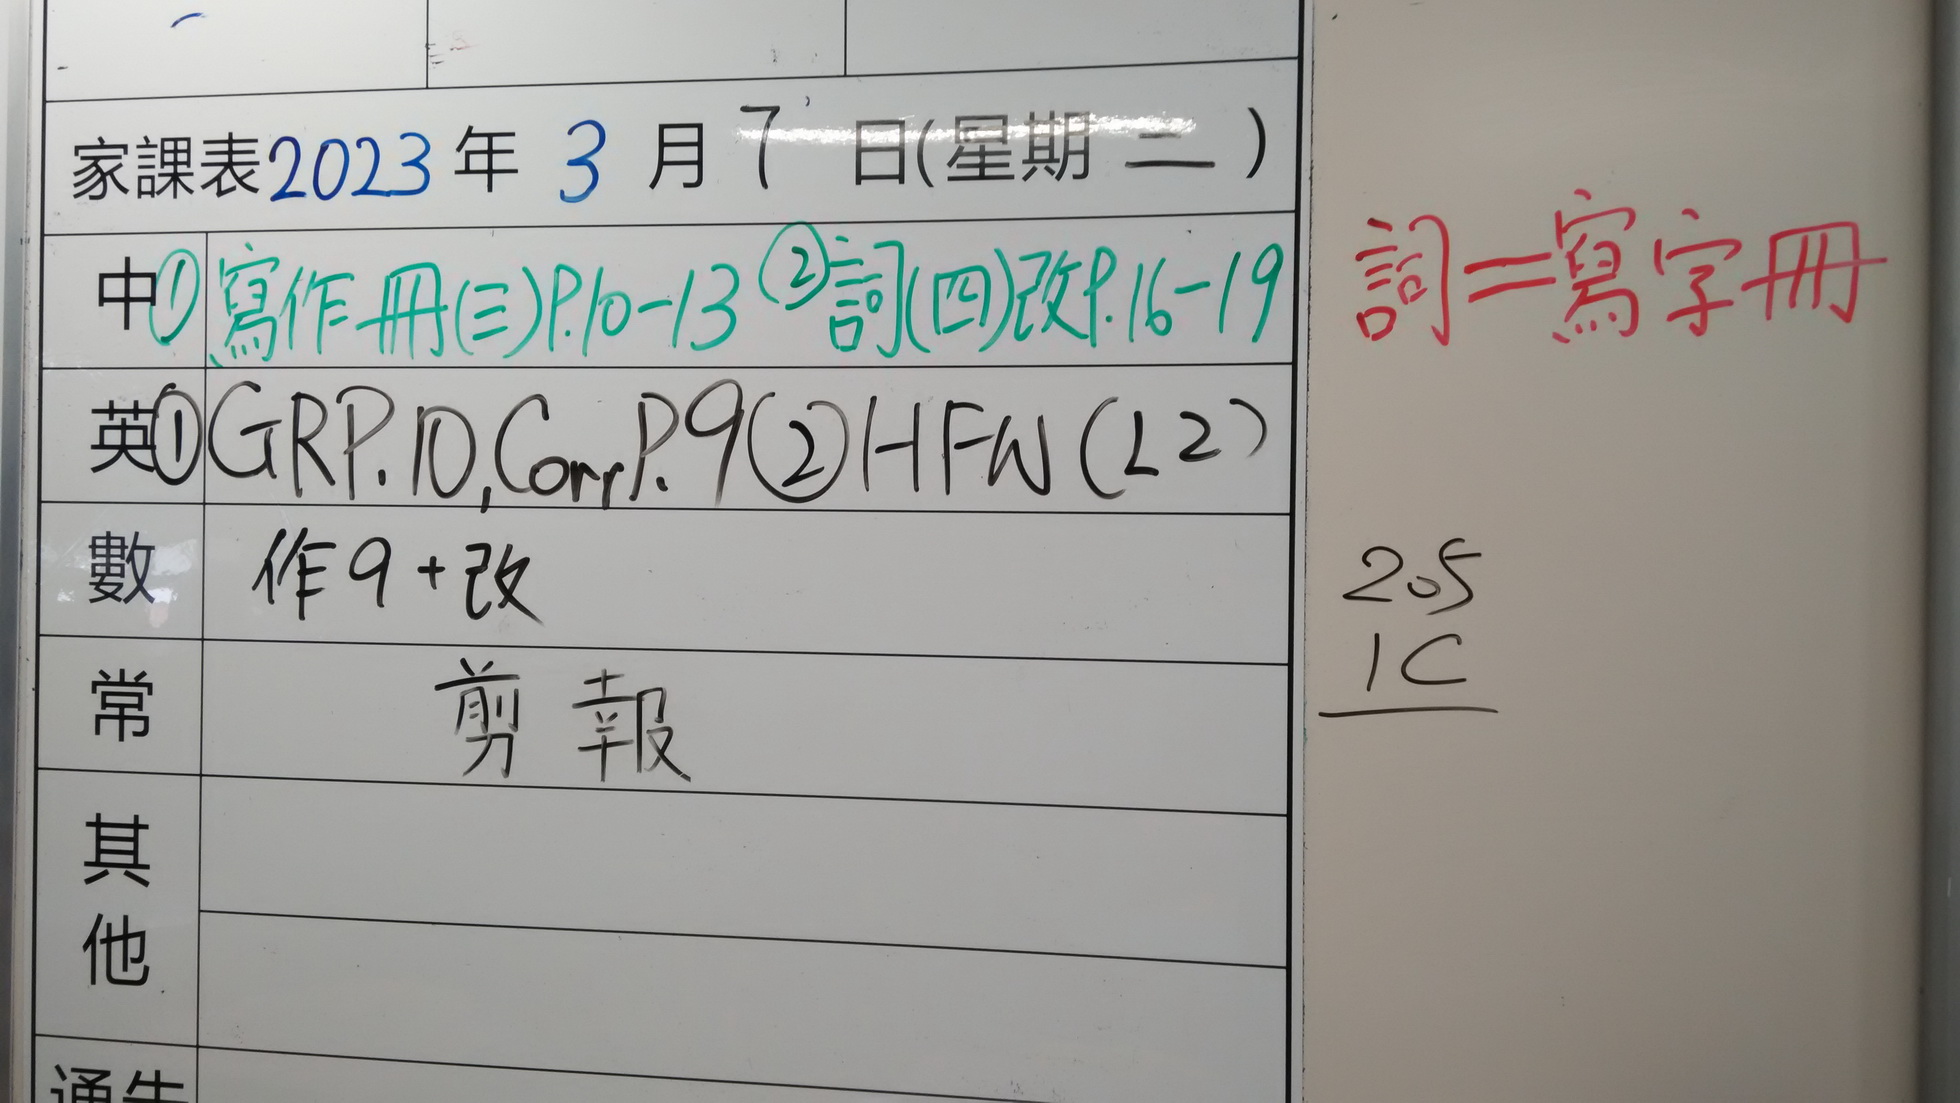 家課表2023年3月7日(星期二)
中①寫作冊(三)P.10-13 ②詞(四)改P.16-19
詞=寫字冊
英①GRP.10,Corr P.9②HFW(L2)
數 作9+改
205
1C
常 剪報
其他
通告